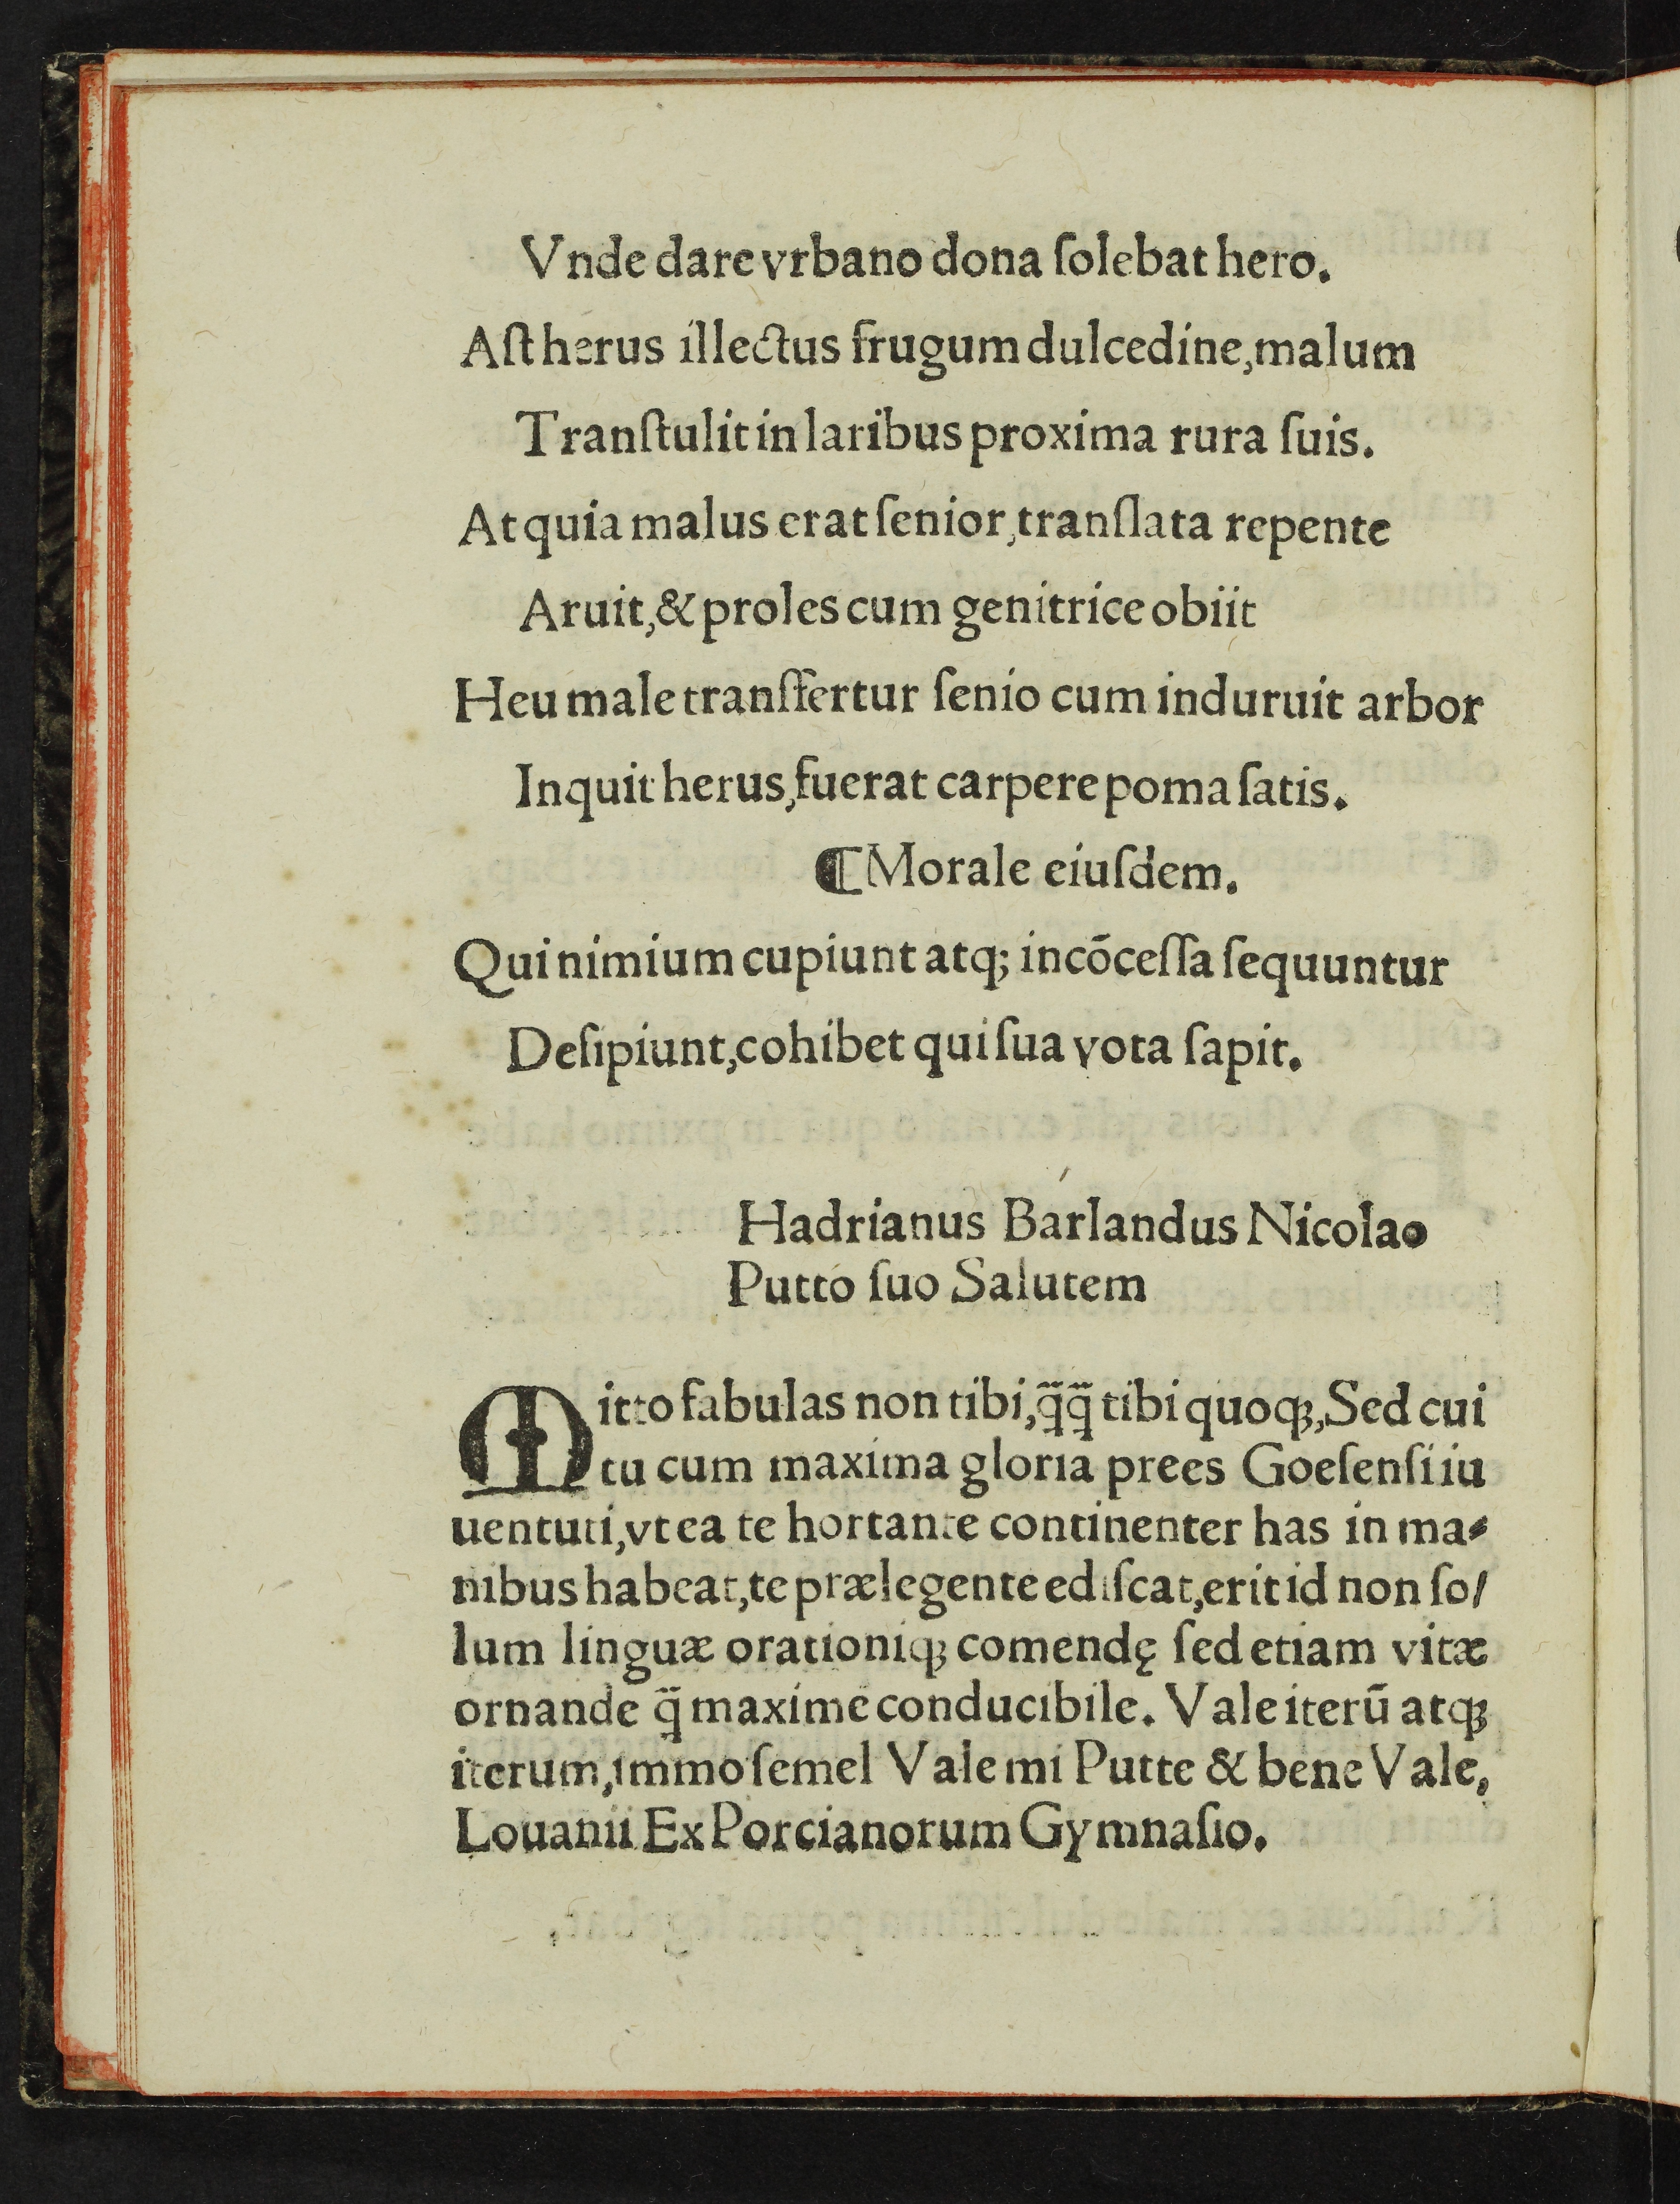 Vnde dare vrbano dona ſolebat hero.
Aſt herus illectus frugum dulcedine, malum
Tranſtulit in laribus proxima rura ſuis.
At quia malus erat ſenior, tranſlata repente
Aruit, & proles cum genitrice obiit
Heu male tranſfertur ſenio cum induruit arbor
Inquit herus, fuerat carpere poma ſatis.
⸿ Morale eiuſdem.
Qui nimium cupiunt atq; incōceſſa ſequuntur
Deſipiunt, cohibet qui ſua vota ſapit.
Hadrianus Barlandus Nicolao
Putto ſuo Salutem
Mitto fabulas non tibi, q̄q̄ tibi quoq;, Sed cui
tu cum maxima gloria prees Goeſenſi iu
uentuti, vt ea te hortante continenter has in ma⸗
nibus habeat, te prælegente ediſcat, erit id non ſo/
lum linguæ orationiq; comendę ſed etiam vitæ
ornande q̄ maxime conducibile. Vale iterū atq;
iterum, immo ſemel Vale mi Putte & bene Vale,
Louanii Ex Porcianorum Gymnaſio.